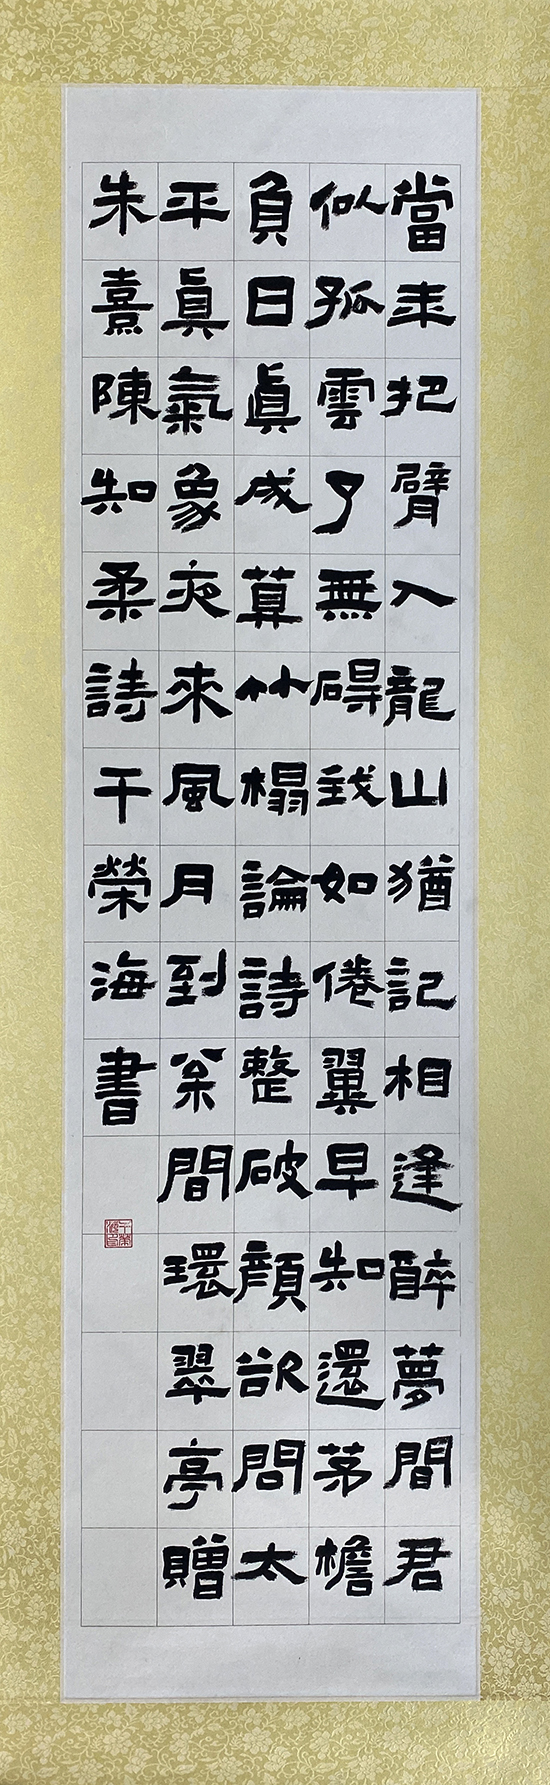 當年把臂入龍山猶記相逢醉夢間君
似孤雲了無碍我如倦翼早知還茅檐
負日眞成算竹榻論詩整破顏欲問太
平眞氣象夜來風月到枀間環翠亭贈
朱熹陳知柔詩干榮海書